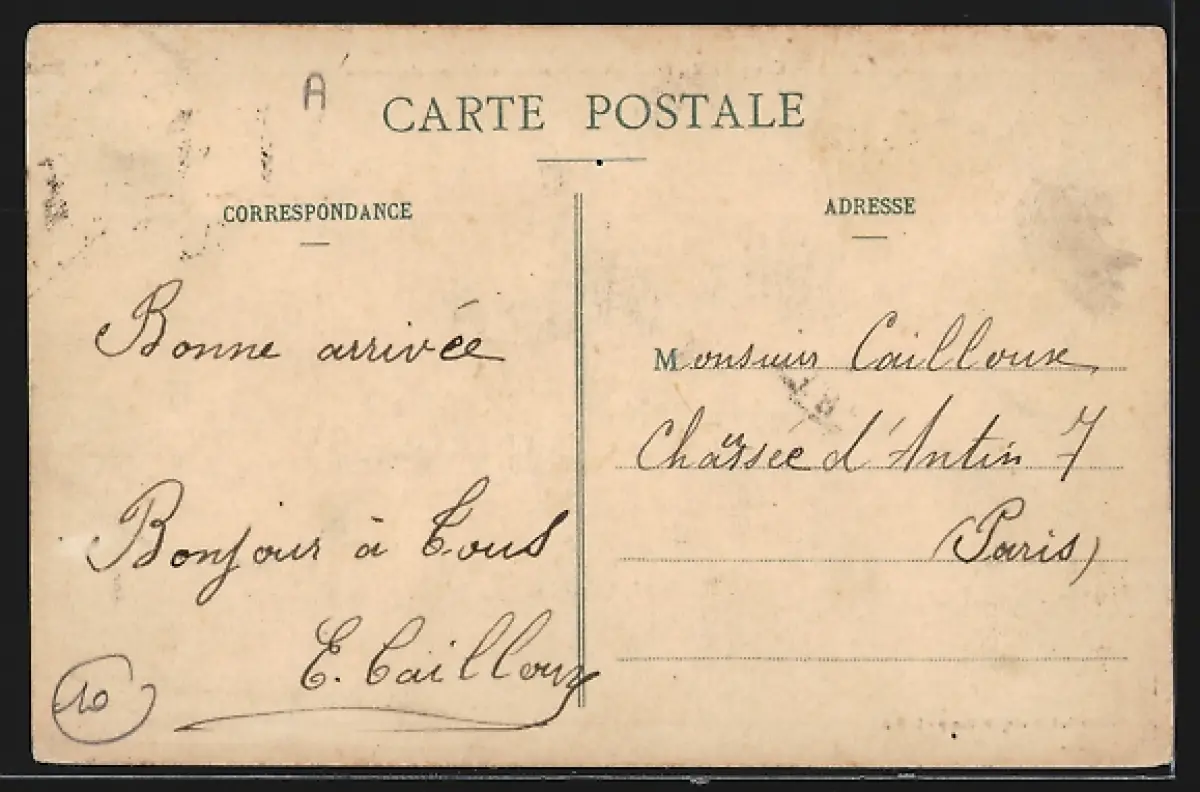 A
CARTE POSTALE
CORRESPONDANCE
Bonne arrivée
Bonjour à Tous
E. Cailloux
10
ADRESSE
Monsieur Cailloux
Chaussée d'Antin 7
(Paris)